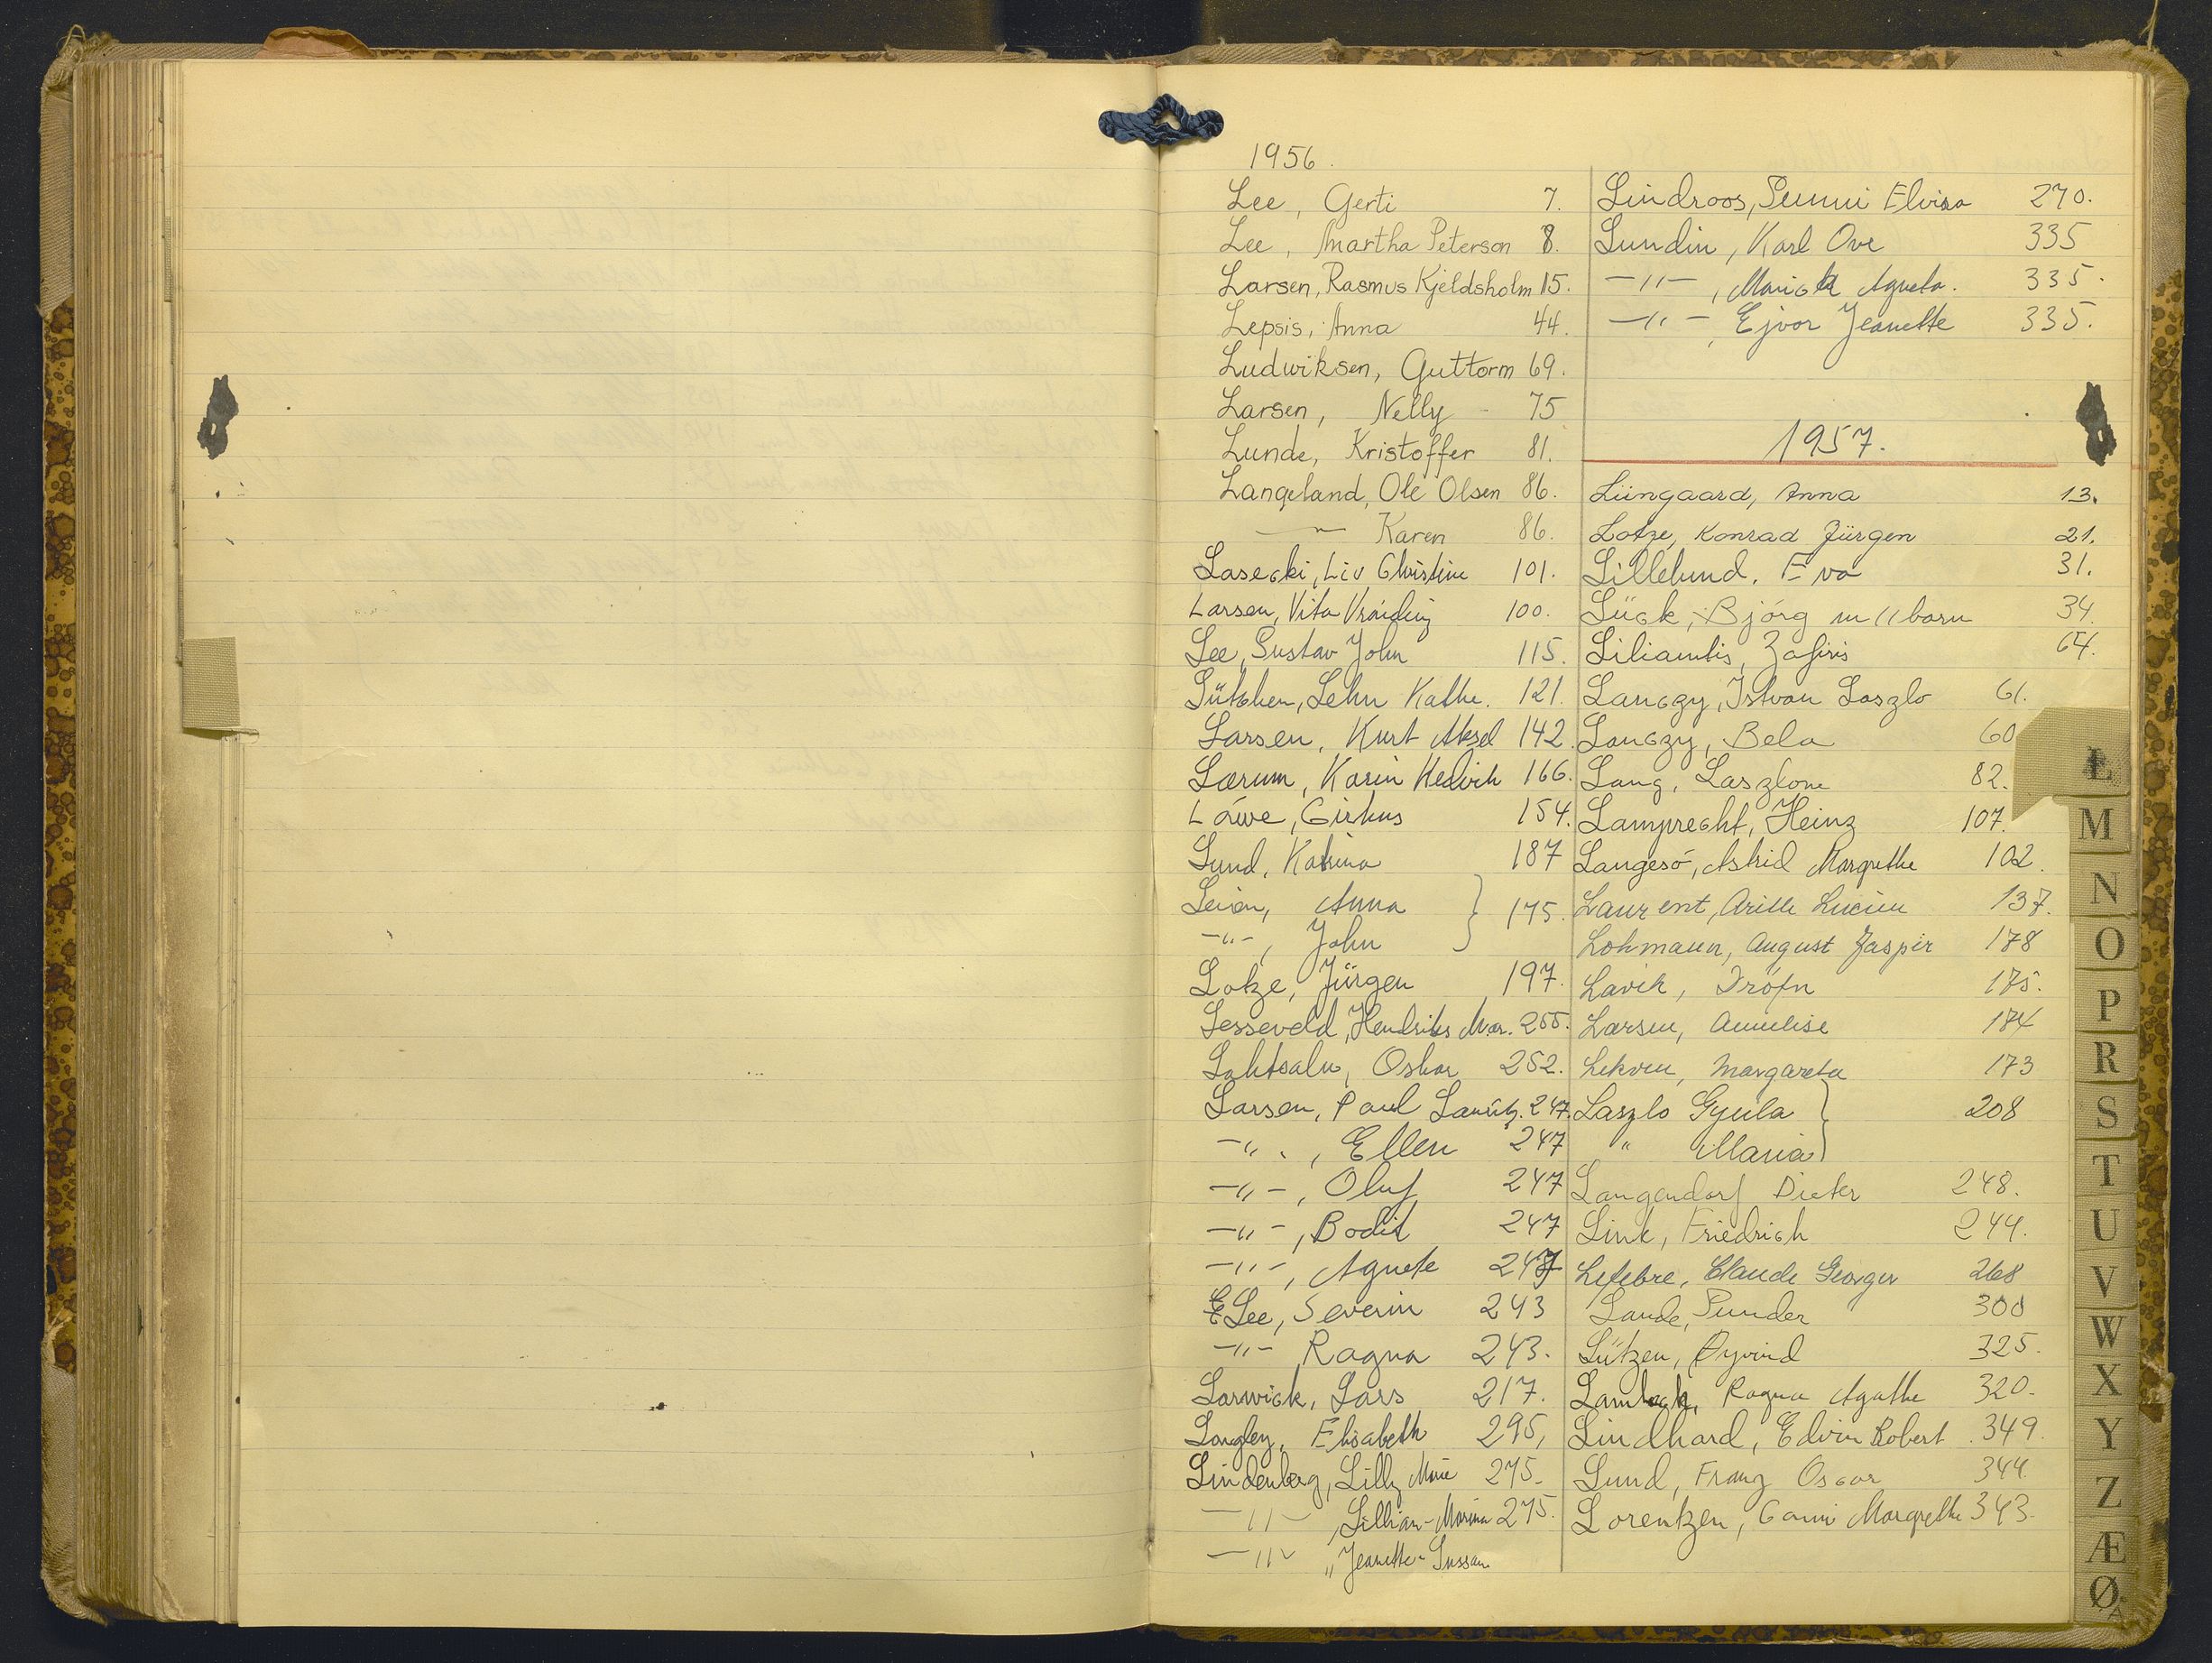 1956.
Lee, Gerti 7.
Lee, Martha Peterson 8.
Larsen, Rasmus Kjeldsholm 15.
Lepsis, Anna 44.
Ludwiksen, Guttorm 69.
Larsen, Nelly - 75
Lunde, Kristoffer 81.
Langeland, Ole Olsen 86.
— " — Karen 86.
Lasecki, Liv Christine 101.
Larsen, Vita 100.
Lee, Gustav John 115.
Lütchen, Lehn Kathe. 121.
Larsen, Kurt Aksel 142.
Lærum, Karin Hedvik 166.
Löwe, Cirkus 154.
Lund, Katrina 187
Leion, Anna } 175.
-"-, John
Lotze, Jürgen 197.
Lesseveld, Hendrikus Mar. 255.
Lahtsalu, Oskar 252.
Larsen, Paul Lauritz. 247.
-"-, Ellen 247
-"-, Oluf 247
-"-, Bodil 247
-"-, Agnete 247
Lee, Severin 243
-"- Ragna 243.
Larwick, Lars 217.
Langley, Elisabeth 295,
Lindenberg, Lilly Marie 275.
-"-, Lillian-Marina 275.
-"- „ Jeanette-Sussan
Lindroos, Sunni Elvira 270.
Lundin, Karl Ove 335
-"-, Agneta. 335.
-"-, Ejvor Jeanette 335.
1957.
Lüngaard, Anna 13.
Lotze, Konrad Jürgen 21.
Lillelund, Eva 31.
Lück, Björg m/1 barn 34.
Liliamtis, Zafiris 64.
Lanczy, Istvan Laszlo 61.
Lanczy, Bela 60
Lang, Laszlone 82.
Lamprecht, Heinz 107.
Langesö, Astrid Margrethe 102.
Laurent, Arille Lucien 137.
Lohmann, August Jaspir 178
Lavik, Dröfn 175.
Larsen, Annelise 174
Lekven, Margareta 173
Laszlo Gyula } 208
" Maria
Langendorf Dieter 248.
Link, Friedrich 244.
Lefebre, Claude Georges 268
Lande, Sunder 300
Lützen, Øyvind 325.
Lambech, Ragna Agathe 320.
Lindhard, Edvin Robert 349.
Lund, Franz Oscar 344.
Lorentzen, Canni Margrethe 343.
L
M
N
O
P
R
S
T
U
V
W
X
Y
Z
Æ
Ø
Å